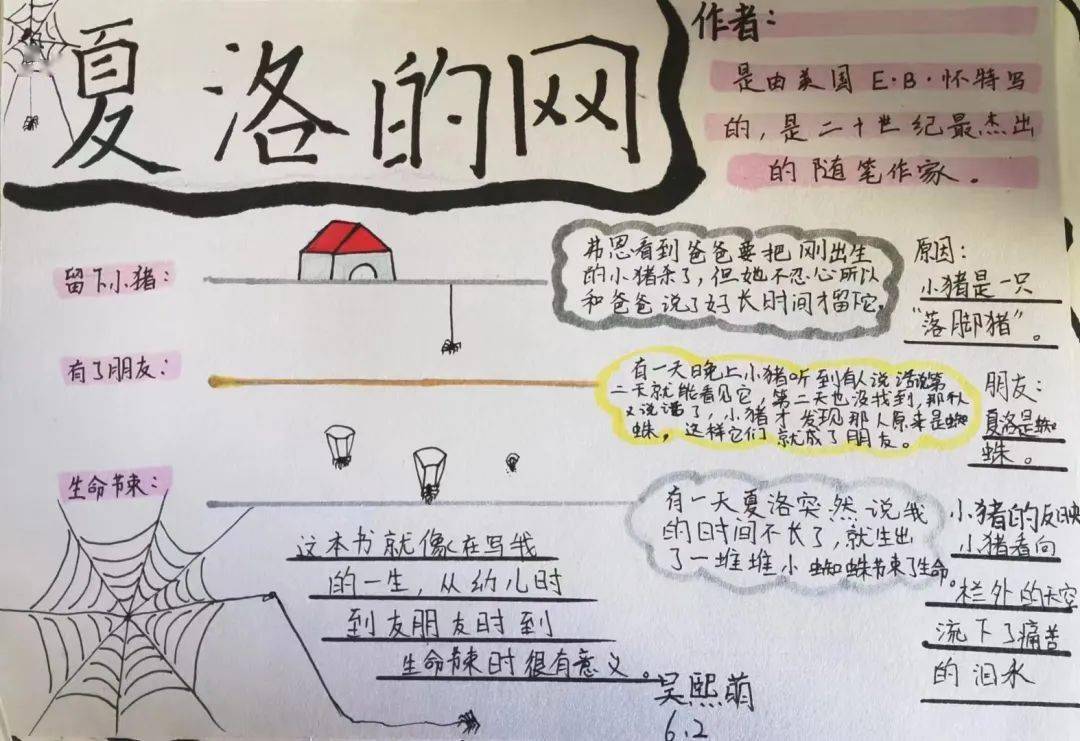 夏洛的网
作者：
是由美国 E·B·怀特写
的，是二十世纪最杰出
的随笔作家。
留下小猪：
弗恩看到爸爸要把刚出生
的小猪杀了，但她不忍心所以
和爸爸说了好长时间才留下它。
原因：
小猪是一只
“落脚猪”。
有了朋友：
有一天晚上小猪听到有人说话说第
二天就能看见它，第二天也没找到，那人
又说话了，小猪才发现那人原来是蜘
蛛，这样它们就成了朋友。
朋友：
夏洛是蜘
蛛。
生命节束：
有一天夏洛突然说我
的日时间不长了，就生出
了一堆堆小蜘蛛节束了生命。
小猪的反映
小猪看向
栏外的天空
流下了痛苦
的泪水
这本书就像在写我
的一生，从幼儿时
到友朋友时到
生命节束时很有意义。
吴熙萌
6.2